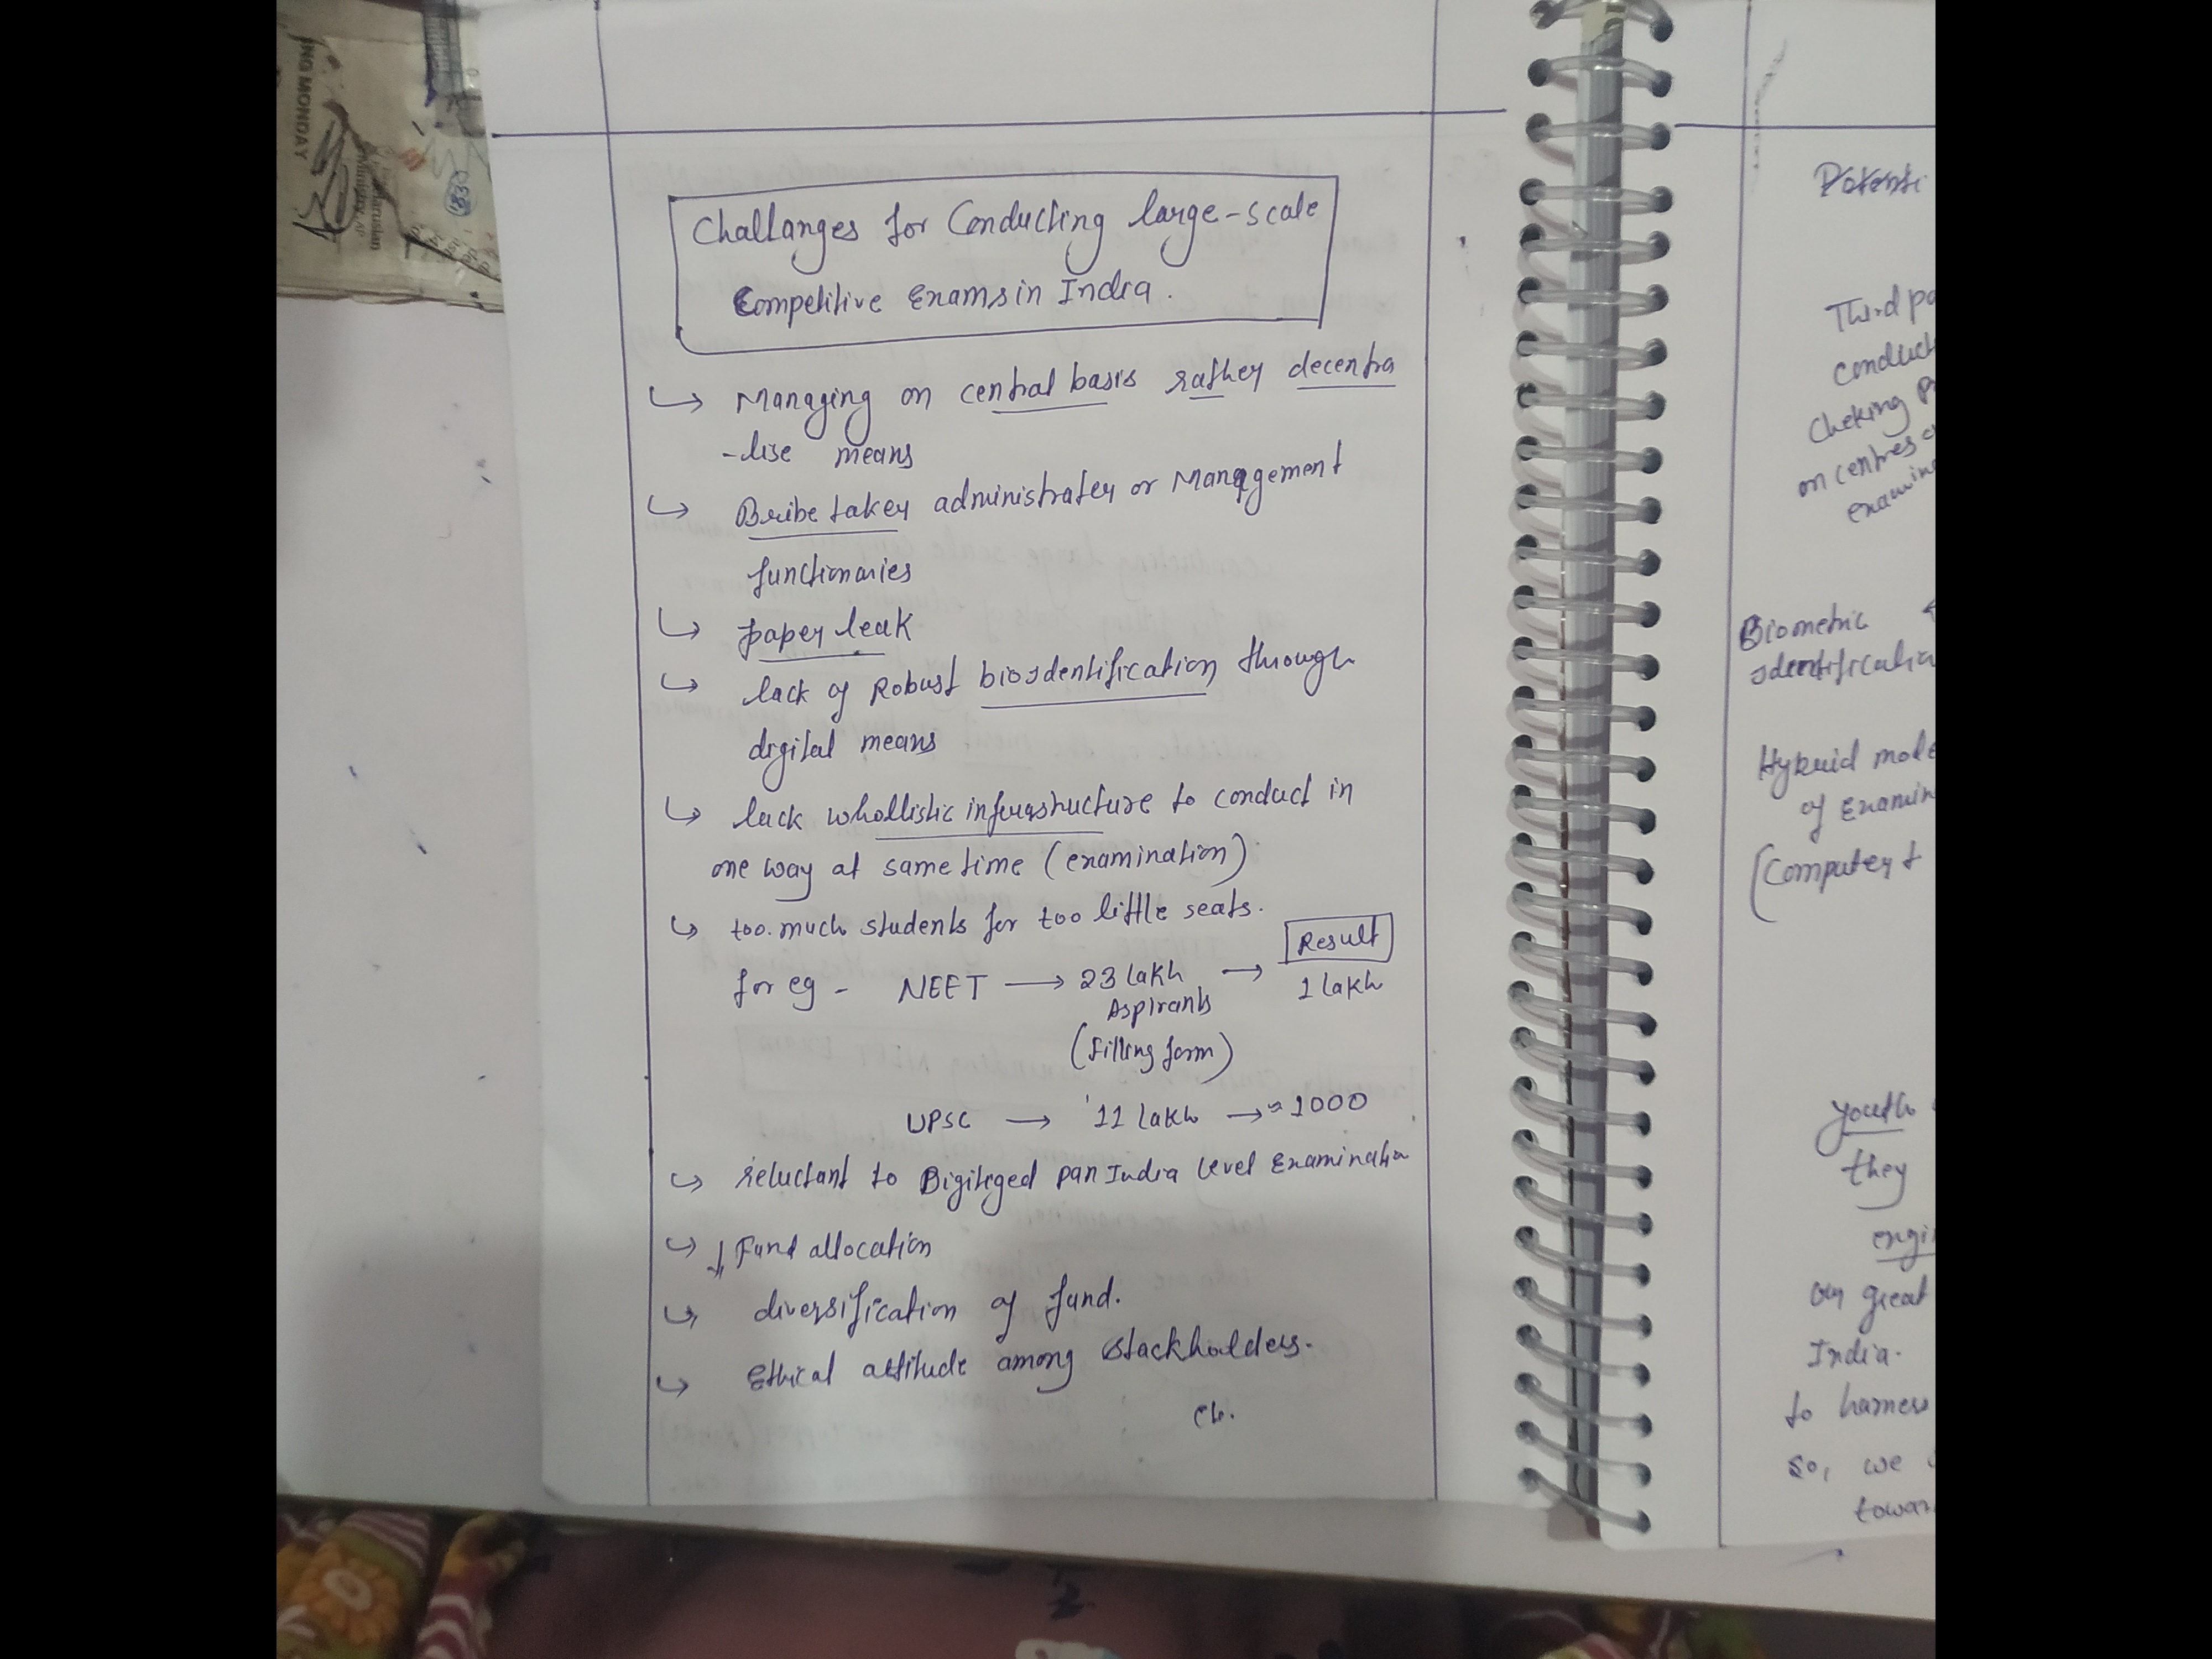 ING MONDAY
Challanges for Conducting large-scale
Competitive Exams in India.
↳ Managing on central basis rather decentra
-lise means
↳ Bribe taker administrater or Management
functionaries
↳ paper leak
↳ lack of Robust bioidentification through
digital means
↳ lack whollistic infrastructure to conduct in
one way at same time (examination)
↳ too much students for too little seats.
for eg - NEET → 23 lakh → Result
Aspirants 1 lakh
(filling form)
UPSC → 11 lakh → ≈ 1000
↳ reluctant to Pan India level Examination
↳ ↓ Fund allocation
↳ diversification of fund.
↳ Ethical attitude among stackholders.
Potenti
Third pa
conduct
Cheking
on centres
examin
Biometric
identificatio
Hybrid mode
of Examin
(Computer
youth
they
engi
our great
India.
to harness
so, we
towar